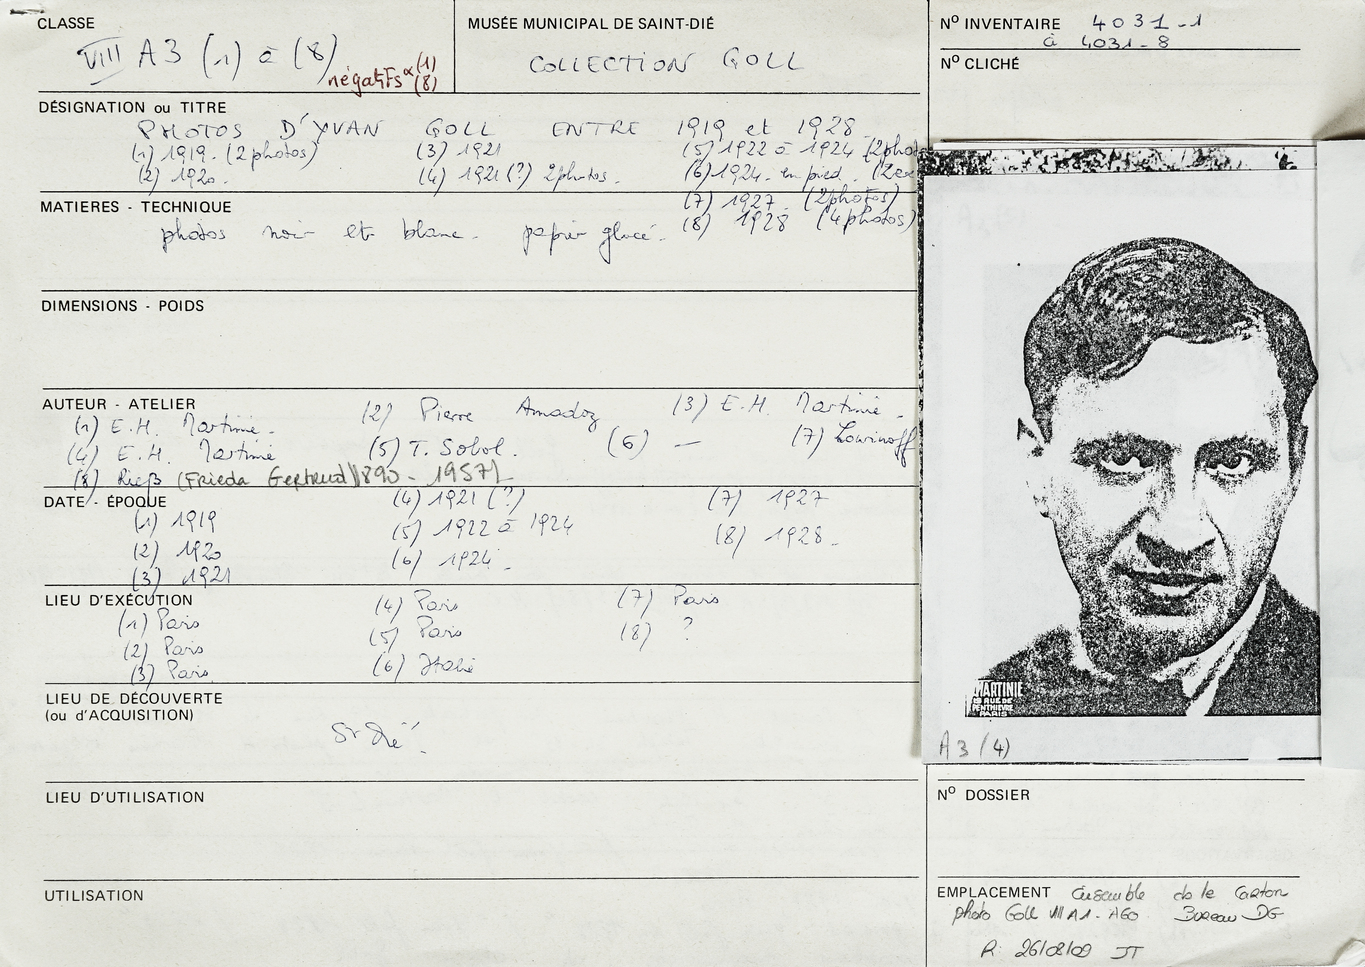 CLASSE
VIII A3 (1) à (8)
négatifs (1)
(8)
MUSÉE MUNICIPAL DE SAINT-DIÉ
COLLECTION GOLL
Nº INVENTAIRE 4031-1
à 4031-8
Nº CLICHÉ
DÉSIGNATION ou TITRE
PHOTOS D'YVAN GOLL ENTRE 1919 et 1928
(1) 1919. (2 photos) (3) 1921 (5) 1922 à 1924 (2 phot
(2) 1920. (4) 1921 (?) 2 photos. (6) 1924. en pied.
(7) 1927. (2 photos)
(8) 1928 (4 photos)
MATIERES - TECHNIQUE
photos noir et blanc. papier glacé.
DIMENSIONS - POIDS
AUTEUR - ATELIER
(1) E.H. Martinie. (2) Pierre (3) E.H. Martinie.
(4) E.H. Martinie (5) T. Sobol. (6) — (7) Lowinoff
(8) Rieß (Frieda Gertrud) 1890 - 1957)
DATE - ÉPOQUE
(1) 1919 (4) 1921 (?) (7) 1927
(2) 1920 (5) 1922 à 1924 (8) 1928.
(3) 1921 (6) 1924.
LIEU D'EXÉCUTION
(1) Paris (4) Paris (7) Paris
(2) Paris (5) Paris (8) ?
(3) Paris. (6) Italie
LIEU DE DÉCOUVERTE
(ou d'ACQUISITION)
St Dié.
LIEU D'UTILISATION
UTILISATION
MARTINIE
RUE DE
PENTHIEVRE
PARIS
A3 (4)
Nº DOSSIER
EMPLACEMENT Ensemble ds le Carton
photo Goll VIII A1 - A60 Bureau DG
R. 26/08/09 JT